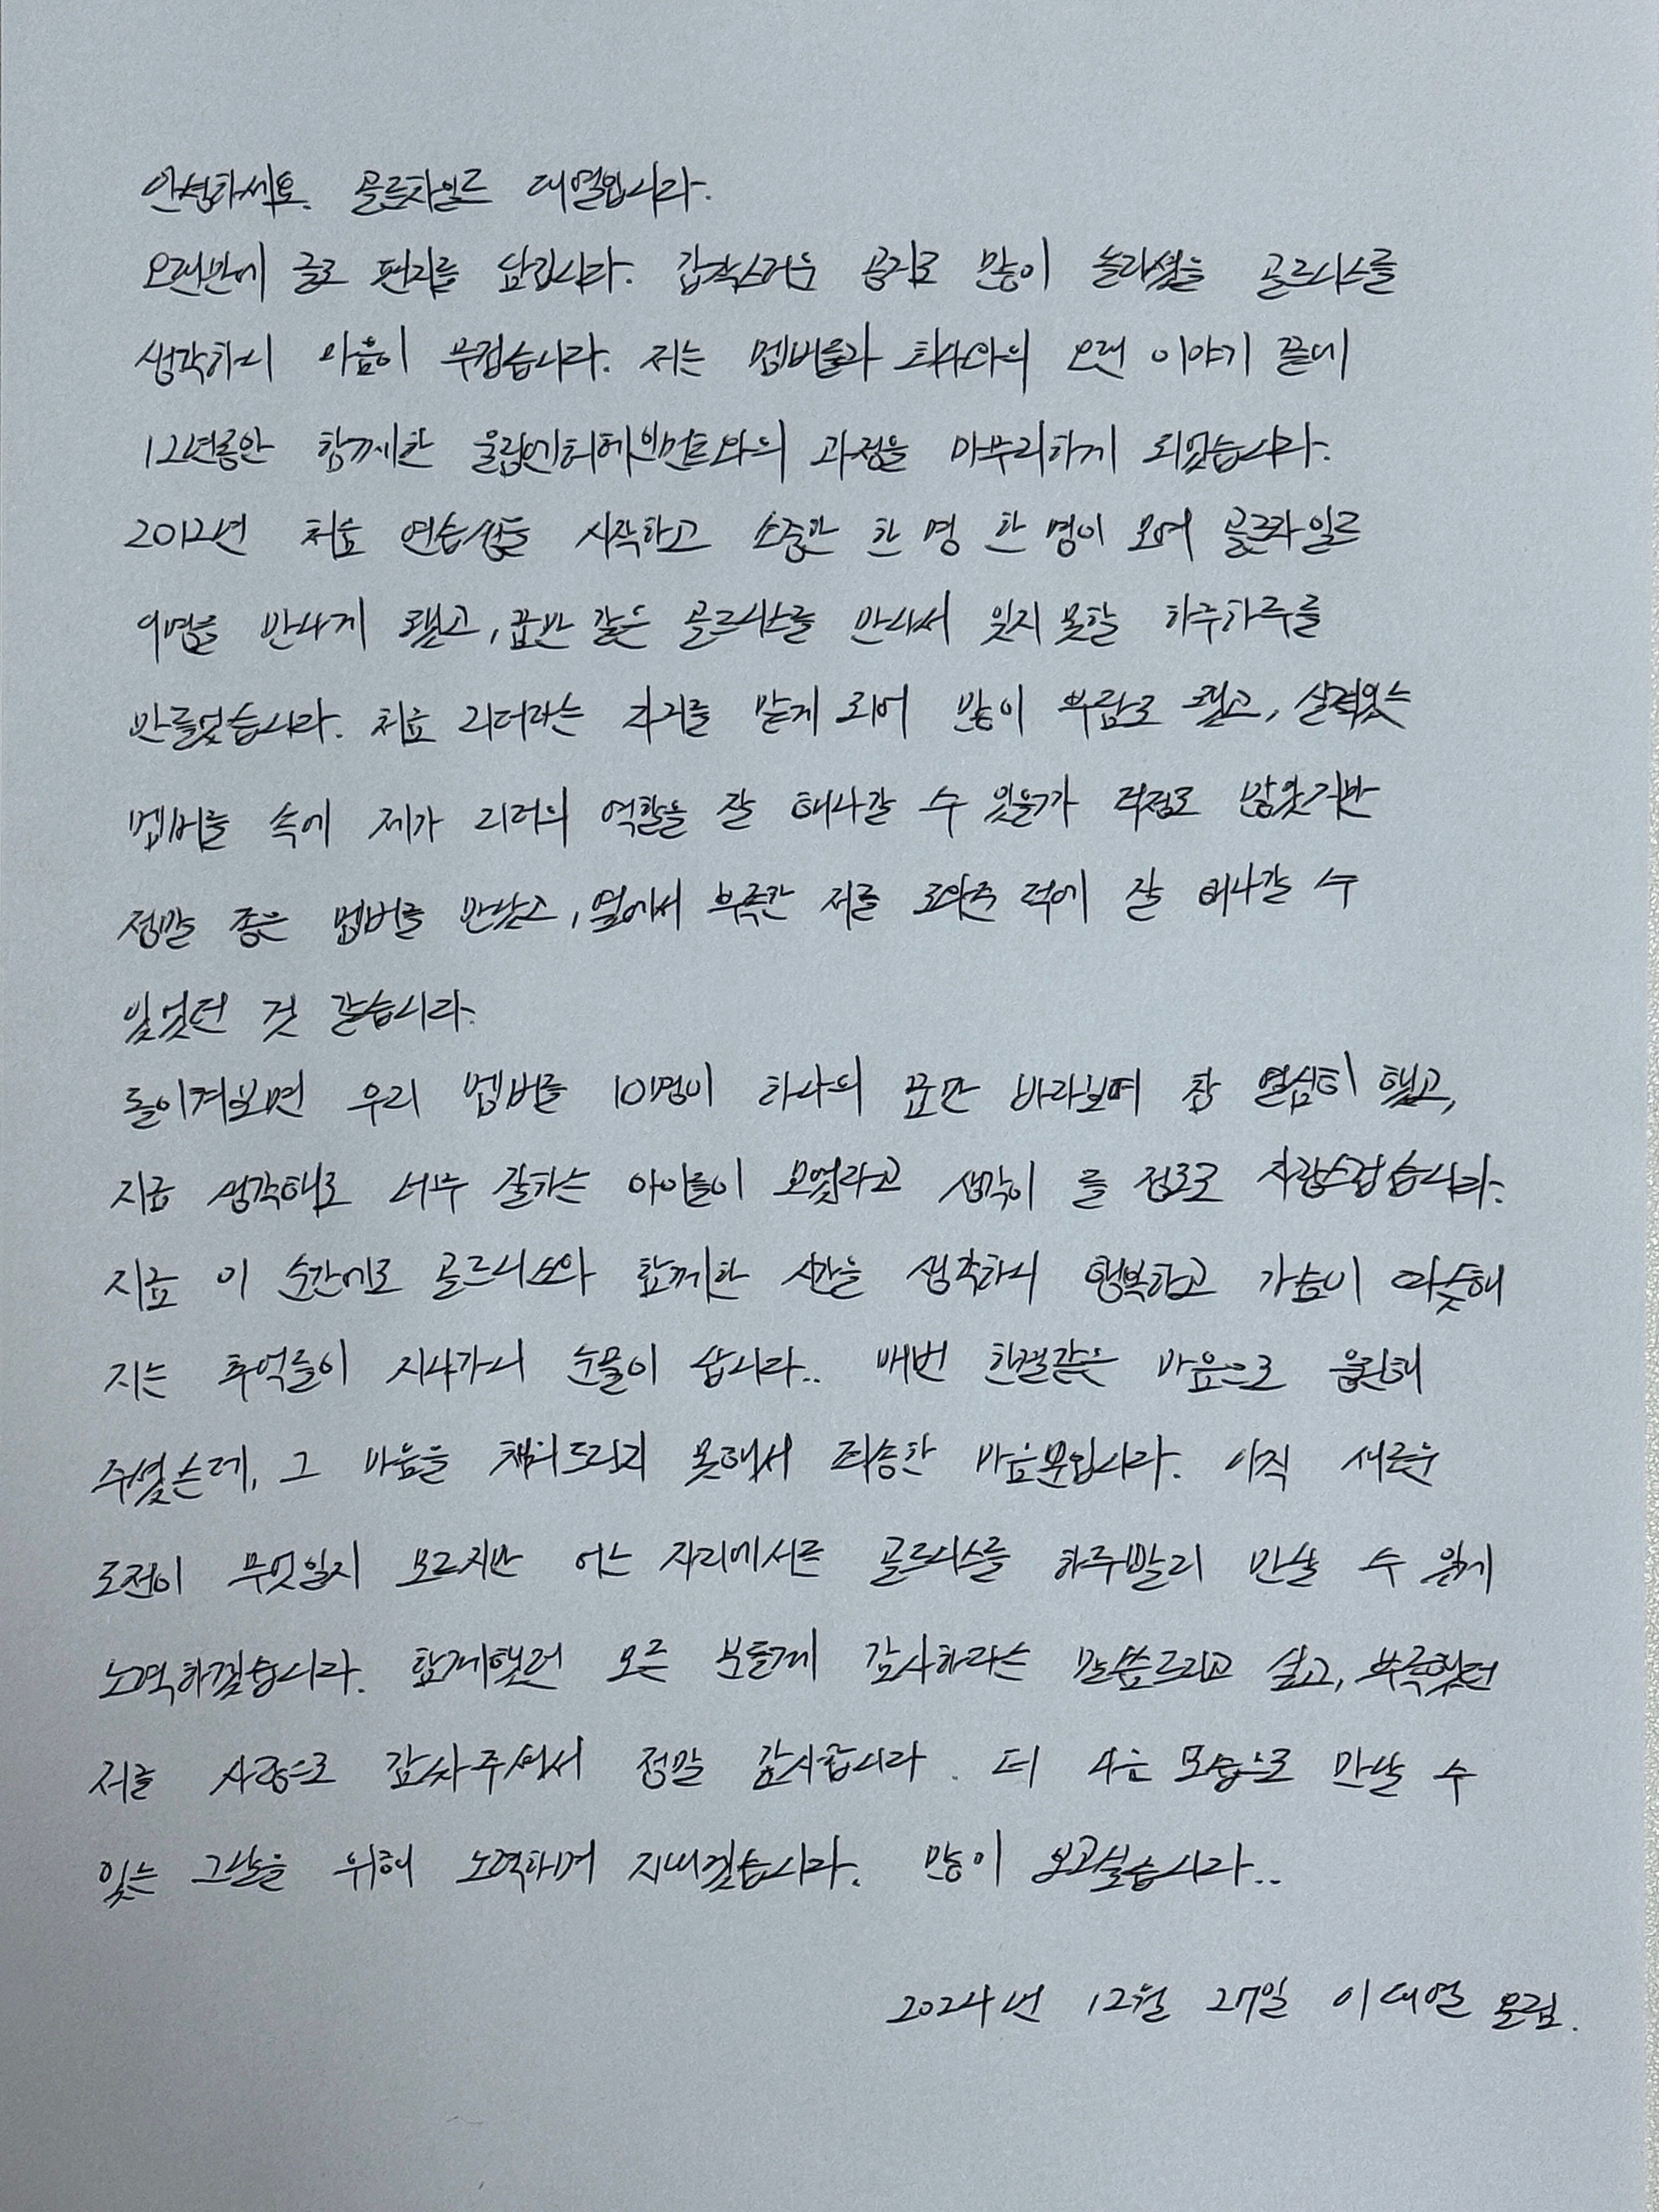 안녕하세요. 골든차일드 대열입니다.
오랜만에 글로 편지를 남깁니다. 갑작스러운 공지로 많이 놀라셨을 골드니스를
생각하니 마음이 무겁습니다. 저는 멤버들과 회사와의 오랜 이야기 끝에
12년동안 함께한 울림엔터테인먼트와의 과정을 마무리하게 되었습니다.
2012년 처음 연습생을 시작하고 소중한 한 명 한 명이 모여 골든차일드
이름을 만나게 됐고, 꿈만 같은 골드니스를 만나서 잊지 못할 하루하루를
만들었습니다. 처음 리더라는 자리를 맡게 되어 많이 부담도 됐고, 실력있는
멤버들 속에 제가 리더의 역할을 잘 해나갈 수 있을까 걱정도 많았지만
정말 좋은 멤버를 만났고, 옆에서 부족한 저를 도와준 덕에 잘 해나갈 수
있었던 것 같습니다.
돌이켜보면 우리 멤버들 10명이 하나의 꿈만 바라보며 참 열심히 했고,
지금 생각해도 너무 잘하는 아이들이 모였다고 생각이 들 정도로 자랑스럽습니다.
지금 이 순간에도 골드니스와 함께한 시간을 생각하니 행복하고 가슴이 따뜻해
지는 추억들이 지나가니 눈물이 납니다.. 매번 한결같은 마음으로 응원해
주셨는데, 그 마음을 채워드리지 못해서 죄송한 마음뿐입니다. 아직 새로운
도전이 무엇일지 모르지만 어느 자리에서든 골드니스를 하루빨리 만날 수 있게
노력하겠습니다. 함께했던 모든 분들께 감사하다는 말씀드리고 싶고, 부족했던
저를 사랑으로 감싸주셔서 정말 감사합니다. 더 나은 모습으로 만날 수
있는 그날을 위해 노력하며 지내겠습니다. 많이 보고싶습니다..
2024년 12월 27일 이대열 올림.